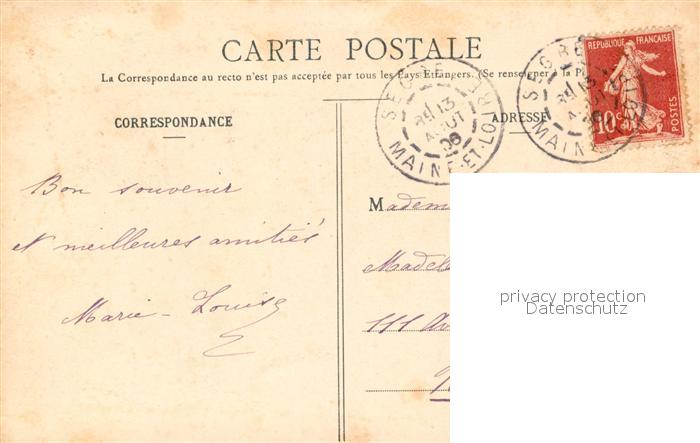 CARTE POSTALE
La Correspondance au recto n'est pas acceptée par tous les Pays Etrangers. (Se renseigner à la
CORRESPONDANCE
ADRESSE
SEGRÉ
13
AOUT
06
MAINE-ET-LOIRE
SEGRÉ
13
AOUT
MAINE
REPUBLIQUE FRANÇAISE
10c
POSTES
Bon souvenir
et meilleures amitiés
Marie-Louise
Madem
Madel
111 Av
privacy protection
Datenschutz